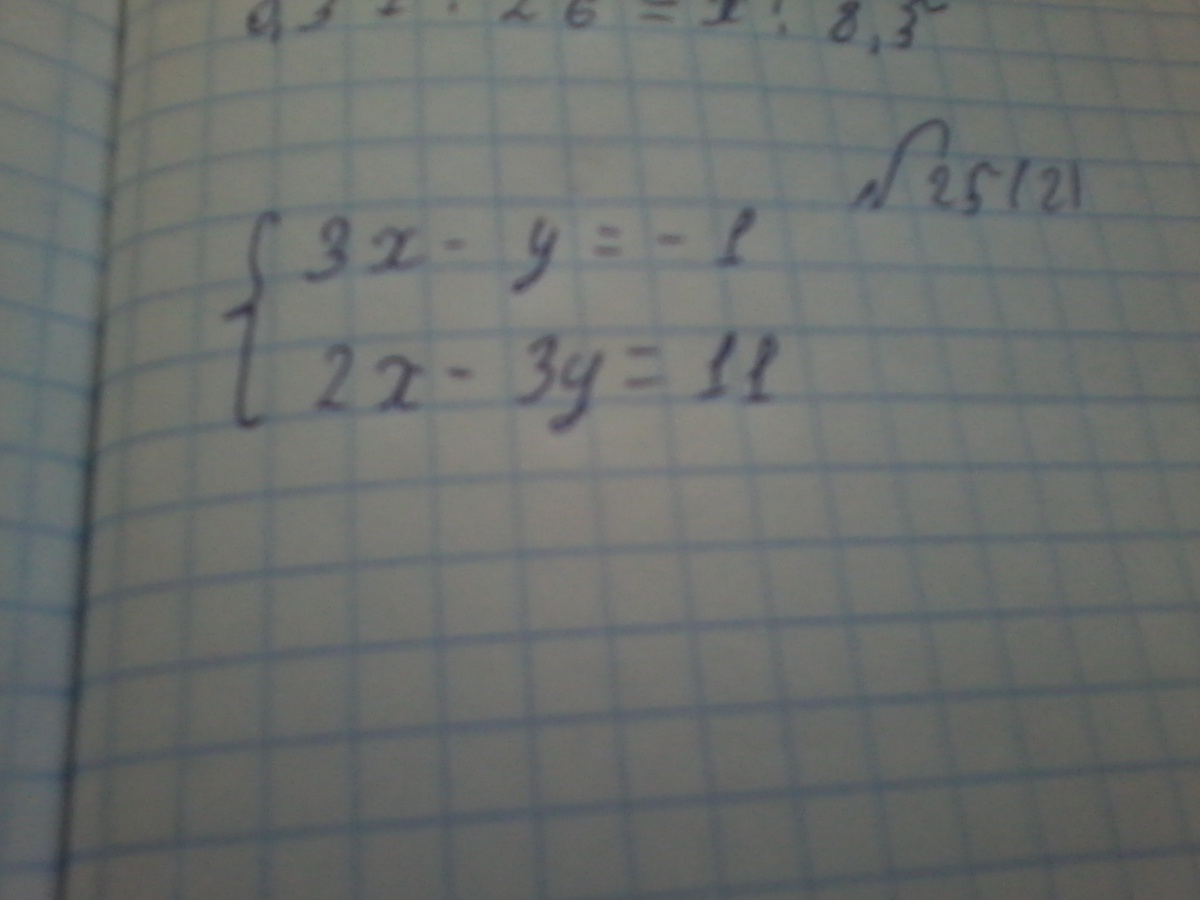 26 = x : 8,3
√25(2)
3x - y = - 1
2x - 3y = 11